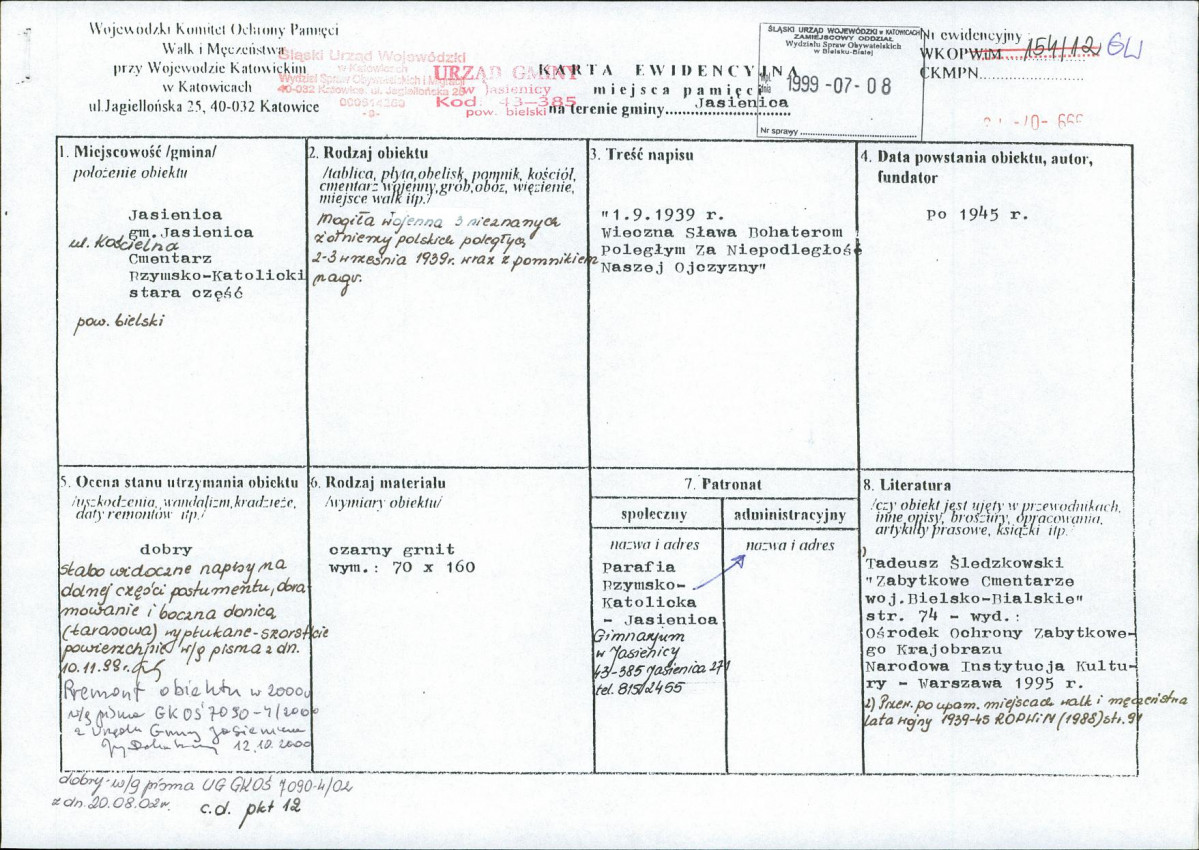 Wojewódzki Komitet Ochrony Pamięci
Walk i Męczeństwa
przy Wojewodzie Katowickim
w Katowicach
ul.Jagiellońska 25, 40-032 Katowice
Śląski Urząd Wojewódzki
w Katowicach
40-032 Katowice, ul. Jagiellońska 25
URZĄD GMINY
w Jasienicy
Kod 43-385
pow. bielski
KARTA EWIDENCYJNA
miejsca pamięci
na terenie gminy Jasienica
ŚLĄSKI URZĄD WOJEWÓDZKI w KATOWICACH
ZAMIEJSCOWY ODDZIAŁ
Wydziału Spraw Obywatelskich
w Bielsku-Białej
1999 -07- 08
Nr sprawy
Nr ewidencyjny
WKOPWiM 154/12 GW
CKMPN
1. Miejscowość /gmina/
położenie obiektu
Jasienica
gm.Jasienica
ul. Kościelna
Cmentarz
Rzymsko-Katolicki
stara część
pow. bielski
2. Rodzaj obiektu
/tablica, płyta,obelisk, pomnik, kościół,
cmentarz wojenny,grób,obóz, więzienie,
miejsce walk itp./
Mogiła wojenna 3 nieznanych
żołnierzy polskich poległych
2-3 września 1939r. wraz z pomnikiem
nagr.
3. Treść napisu
"1.9.1939 r.
Wieczna Sława Bohaterom
Poległym Za Niepodległość
Naszej Ojczyzny"
4. Data powstania obiektu, autor,
fundator
Po 1945 r.
5. Ocena stanu utrzymania obiektu
/uszkodzenia, wandalizm,kradzieże,
daty remontów itp./
dobry
słabo widoczne napisy na
dolnej części postumentu, obra-
mowanie i boczna donica
(tarasowa) wypłukane-szorstkie
powierzchnie w/g pisma z dn.
10.11.98r.
Remont obiektu w 2000r
w/g pisma GKOŚ 7090-4/2000
z Urzędu Gminy Jasienica
12.10.2000
6. Rodzaj materiału
/wymiary obiektu/
czarny grnit
wym.: 70 x 160
7. Patronat
społeczny
administracyjny
nazwa i adres
nazwa i adres
Parafia
Rzymsko-
Katolicka
- Jasienica
Gimnazjum
w Jasienicy
43-385 Jasienica 271
tel. 815/2455
8. Literatura
/czy obiekt jest ujęty w przewodnikach,
inne opisy, broszury, opracowania,
artykuły prasowe, książki itp./
Tadeusz Śledzkowski
"Zabytkowe Cmentarze
woj.Bielsko-Bialskie"
str. 74 - wyd.:
Ośrodek Ochrony Zabytkowe-
go Krajobrazu
Narodowa Instytucja Kultu-
ry - Warszawa 1995 r.
2) Przew. po upam. miejscach walk i męczeństwa
lata wojny 1939-45 ROPWiN (1988) str. 91
dobry - w/g pisma UG GKOŚ 7090-4/02
z dn. 20.08.02r.
c.d. pkt 12